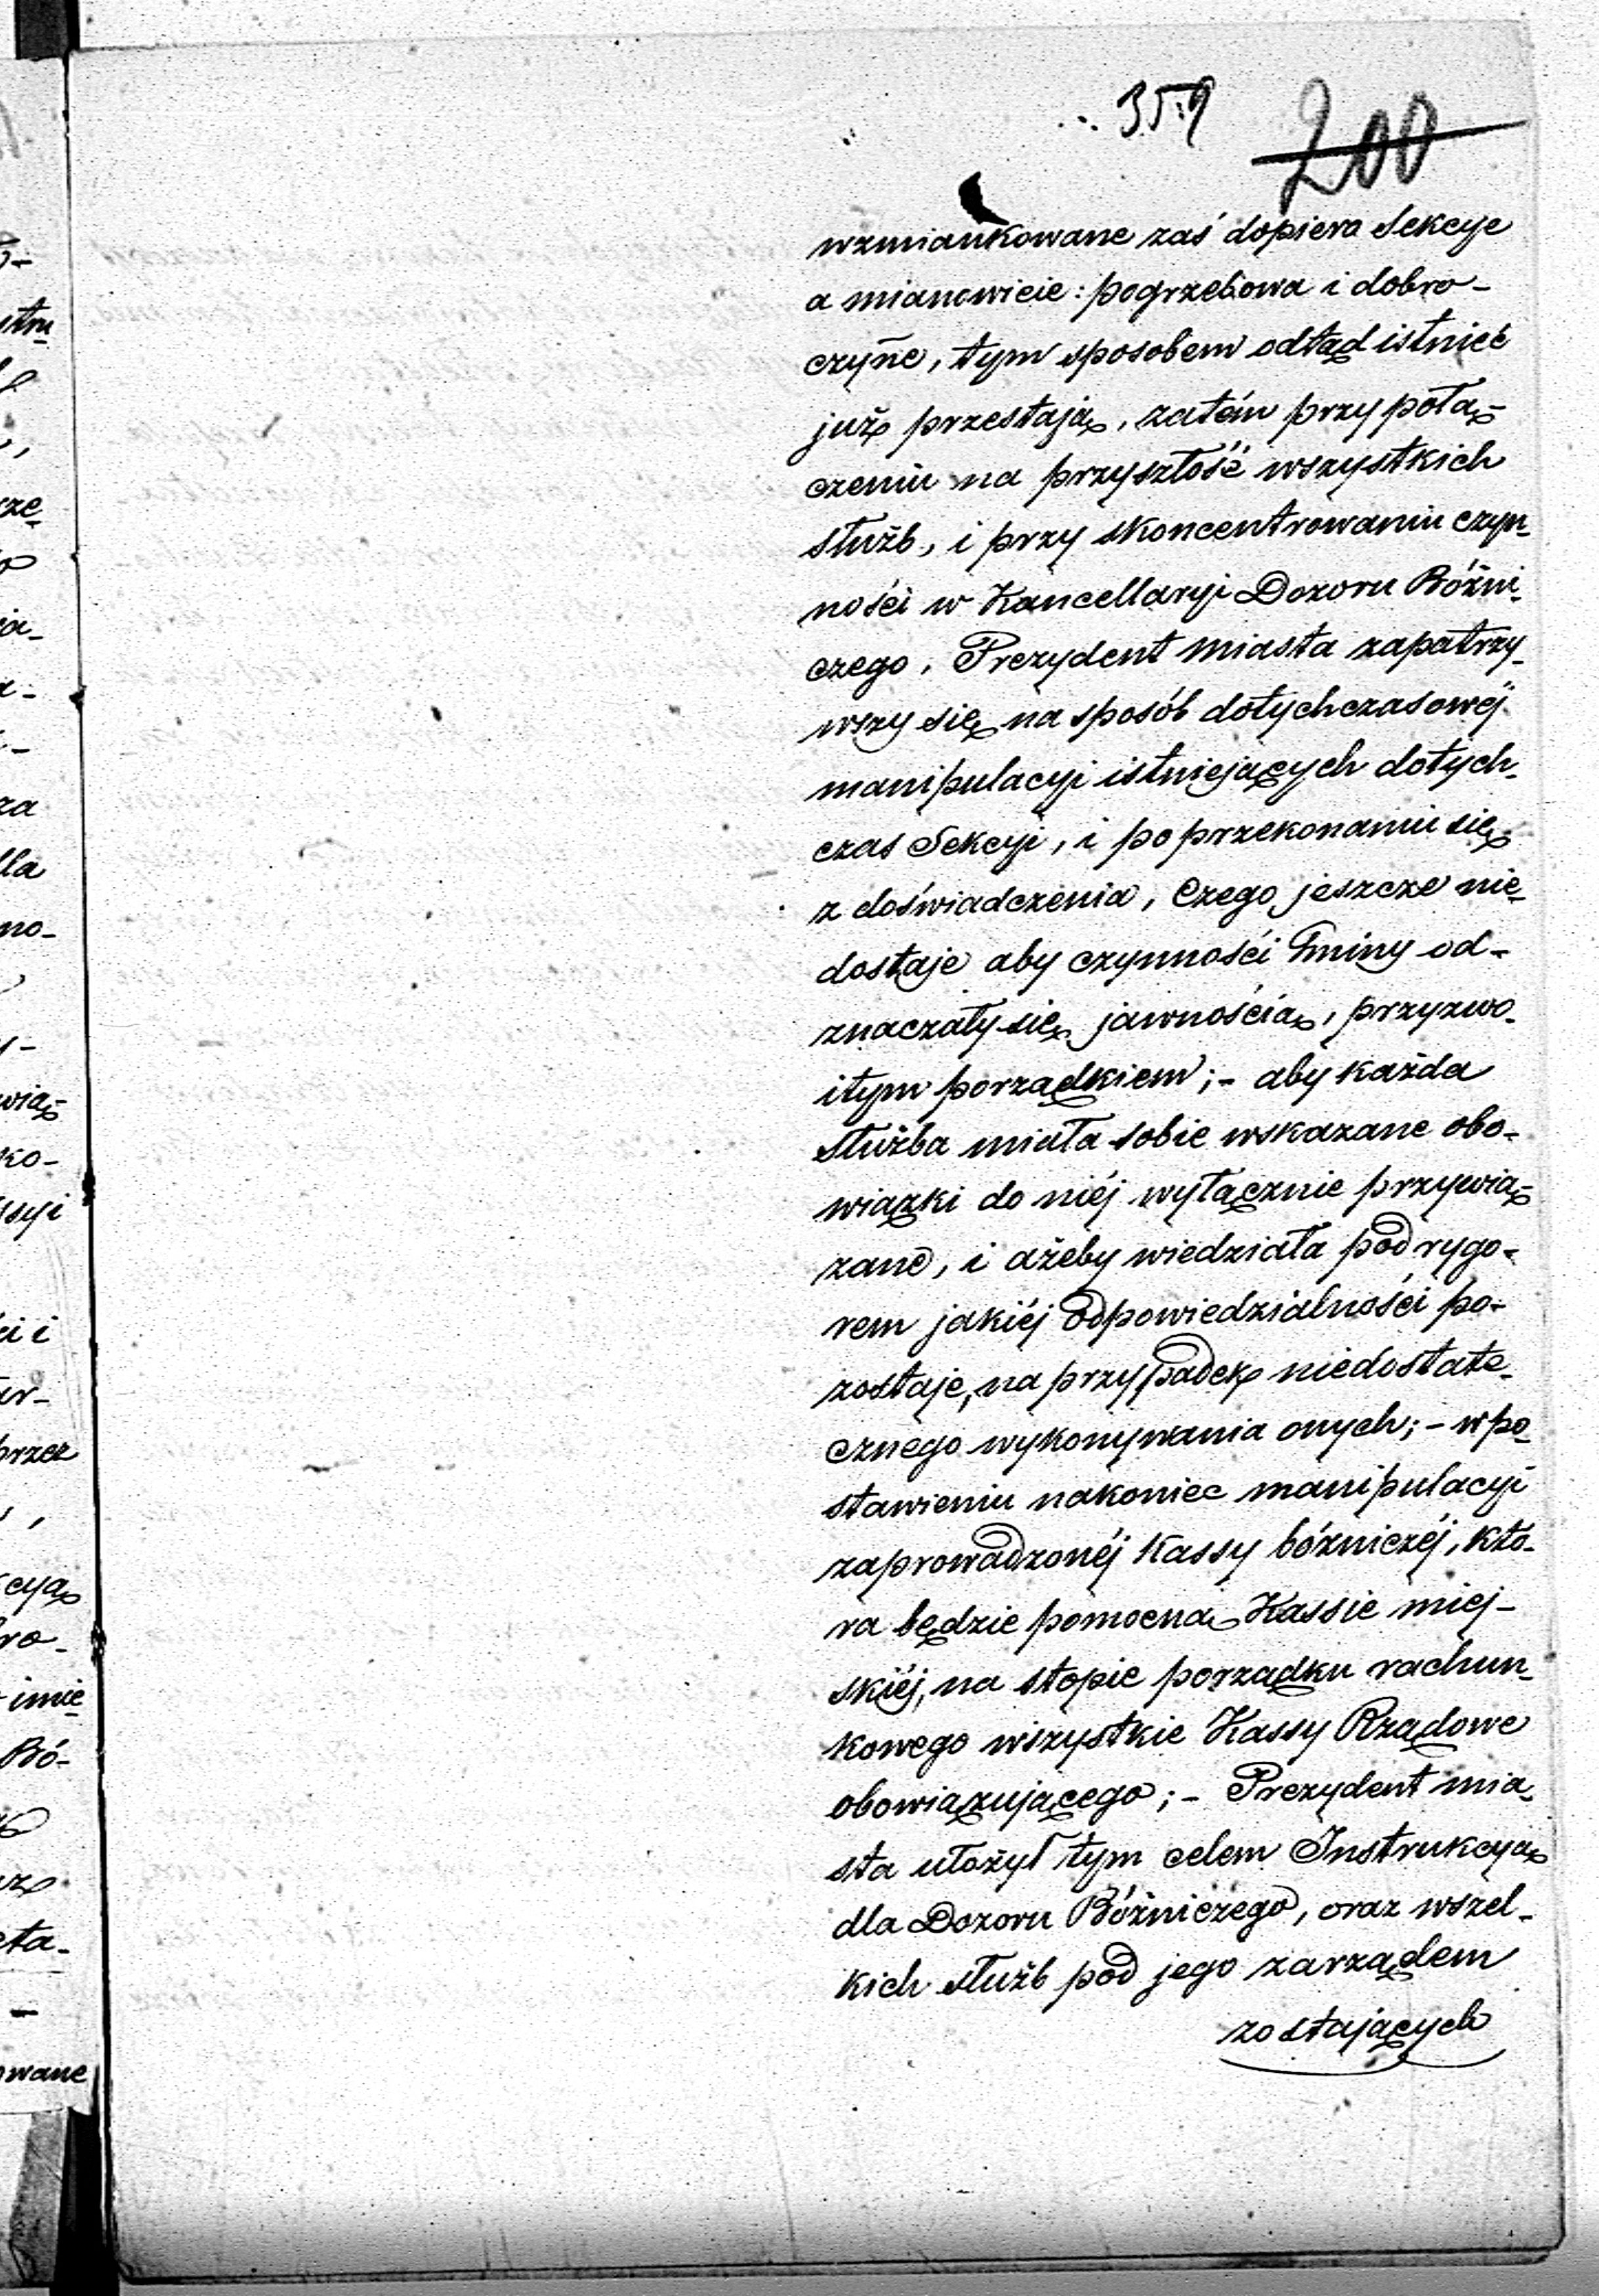 359
200
wzmiankowane zaś dopiero Sekcye
a mianowicie: pogrzebowa i dobro-
czyne, tym sposobem odtąd istnieć
już przestają, zatém przy połą-
czeniu na przyszłość wszystkich
służb, i przy skoncentrowaniu czyn-
ności w Kancellaryi Dozoru Bóżni-
czego, Prezydent miasta zapatrzy-
wszy się na sposób dotychczasowéj
manipulacyi istniejących dotych-
czas Sekcyi, i po przekonaniu się
z doświadczenia, Czego jeszcze nie-
dostaje aby czynności Gminy od-
znaczały się jawnością, przyzwo-
itym porządkiem;- aby każda
służba miała sobie wskazane obo-
wiązki do niéj wyłącznie przywią-
zane, i ażeby wiedziała pod rygo-
rem jakiéj odpowiedzialności po-
zostaje, na przypadek niedostate-
cznego wykonywania onych;- w po-
stawieniu nakoniec manipulacyi
zaprowadzonéj Kassy bóżniczéj, któ-
ra będzie pomocną Kassie miej-
skiéj, na stopie porządku rachun-
kowego wszystkie Kassy Rządowe
obowiązującego;- Prezydent mia-
sta ułożył tym celem Instrukcyą
dla Dozoru Bóżniczego, oraz wszel-
kich służb pod jego zarządem
zostających